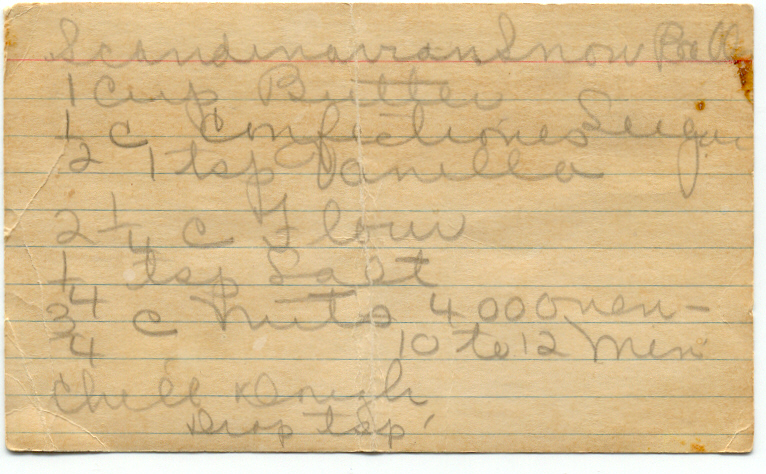 Scandinavian Snow Balls
1 cup Butter
1/2 c Confectiones Sugar
1 tsp Vanilla
2 1/4 c Flour
1/4 tsp Salt
3/4 c nuts 400 Oven -
10 to 12 Min
Chill Dough
Drop tsp